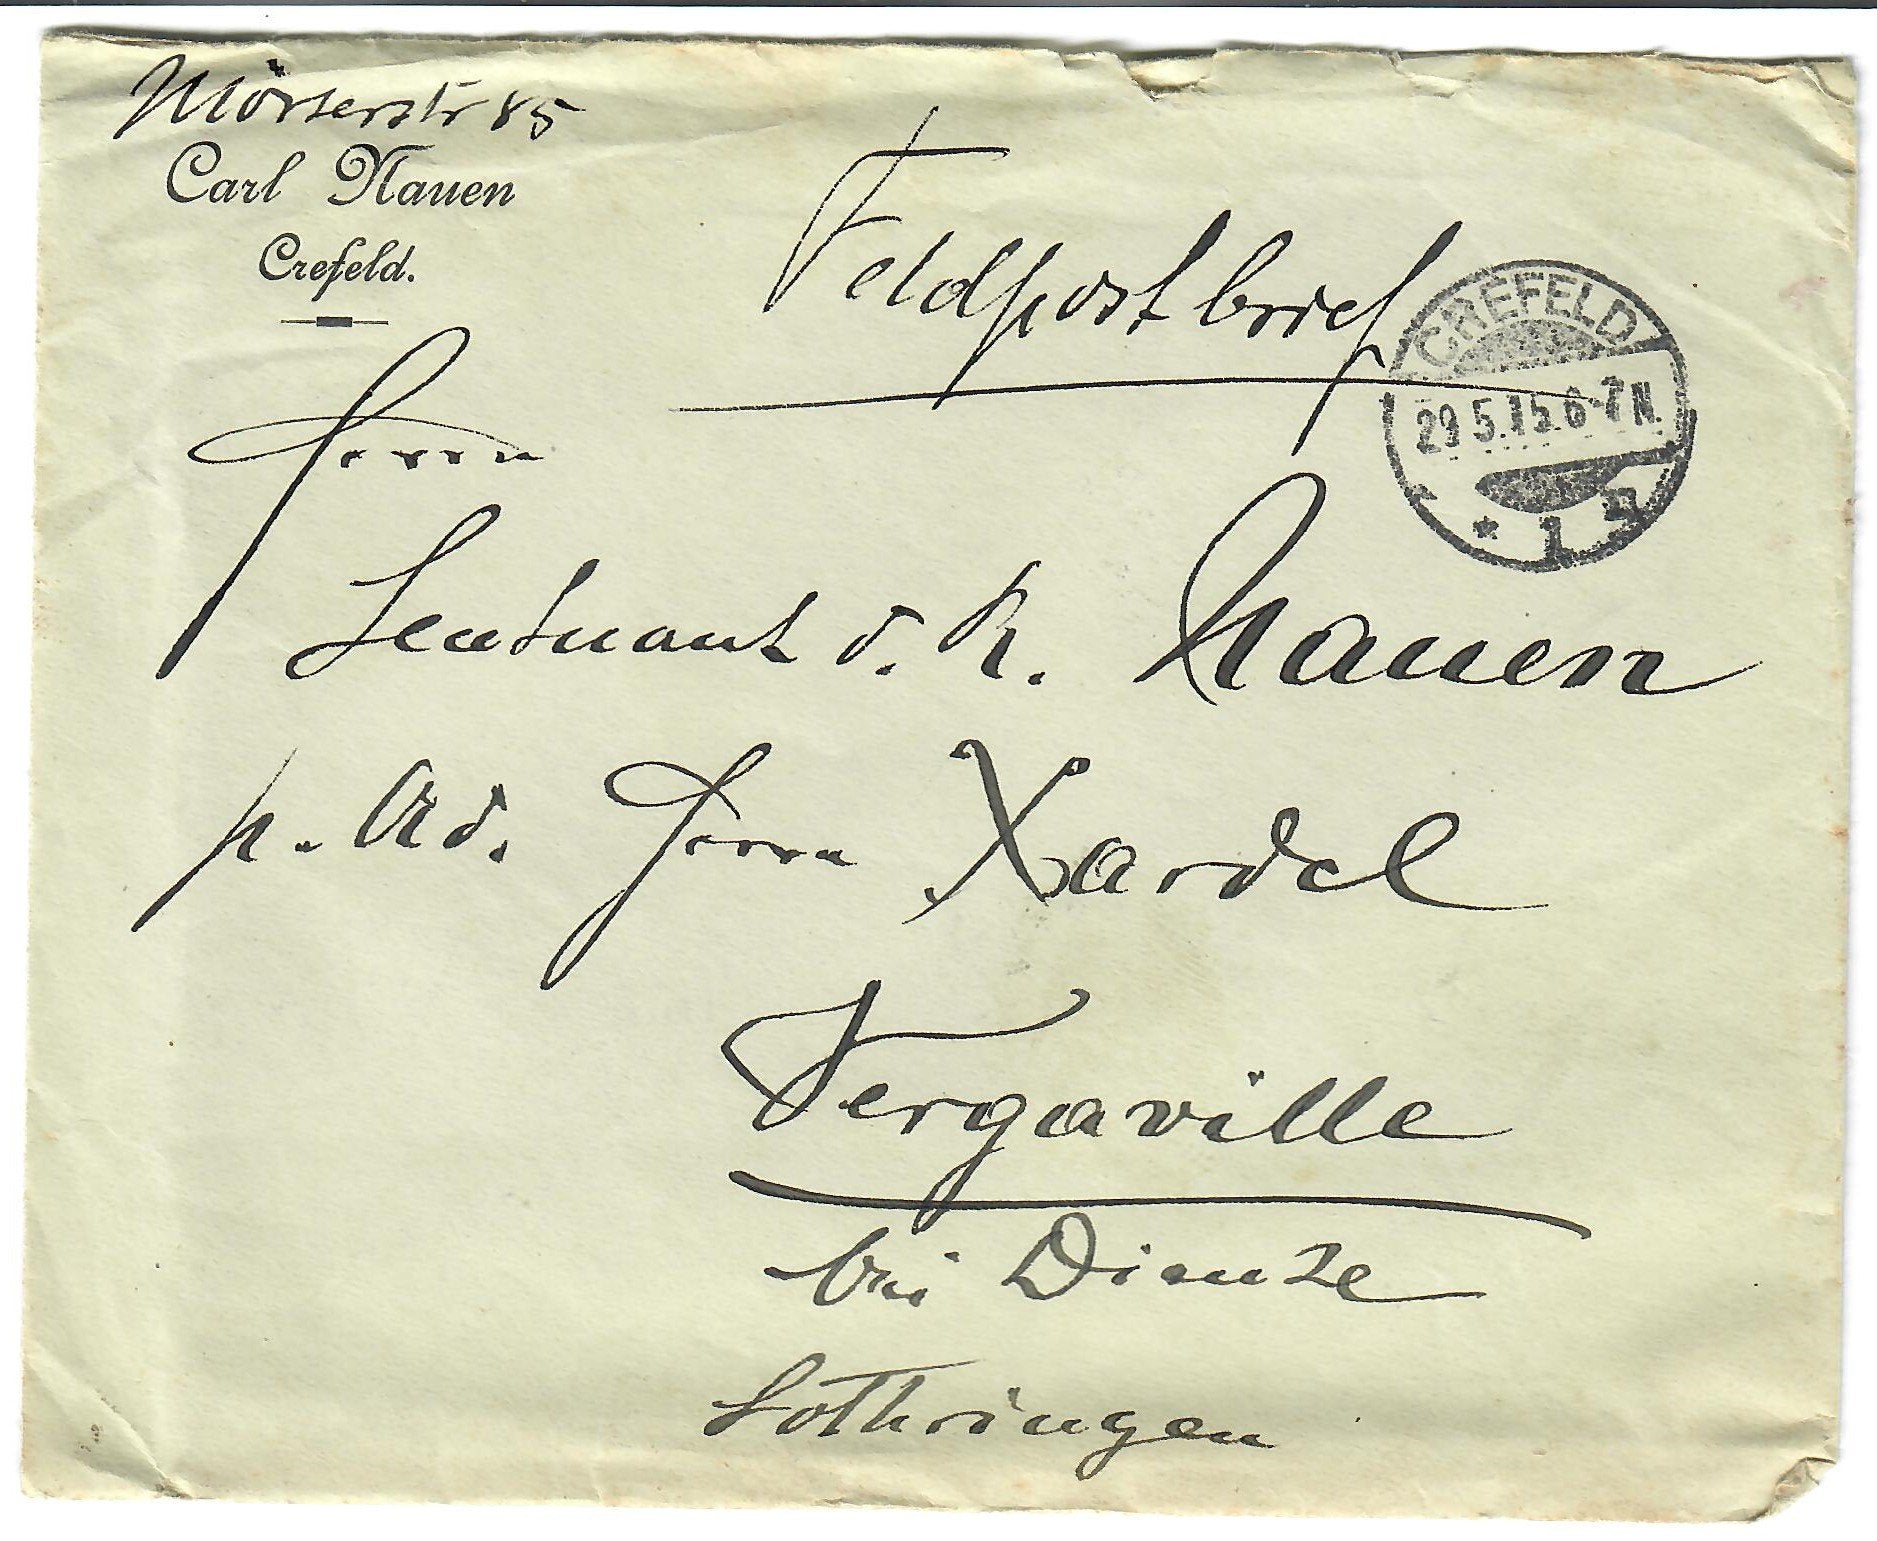 Mörserstr 85
Carl Nauen
Crefeld.
Feldpostbrief
CREFELD
29.5.15.6-7N.
* 1
Herrn
Leutnant d. R. Nauen
p. Ad. Herrn Xardel
Vergaville
bei Dieuze
Lothringen